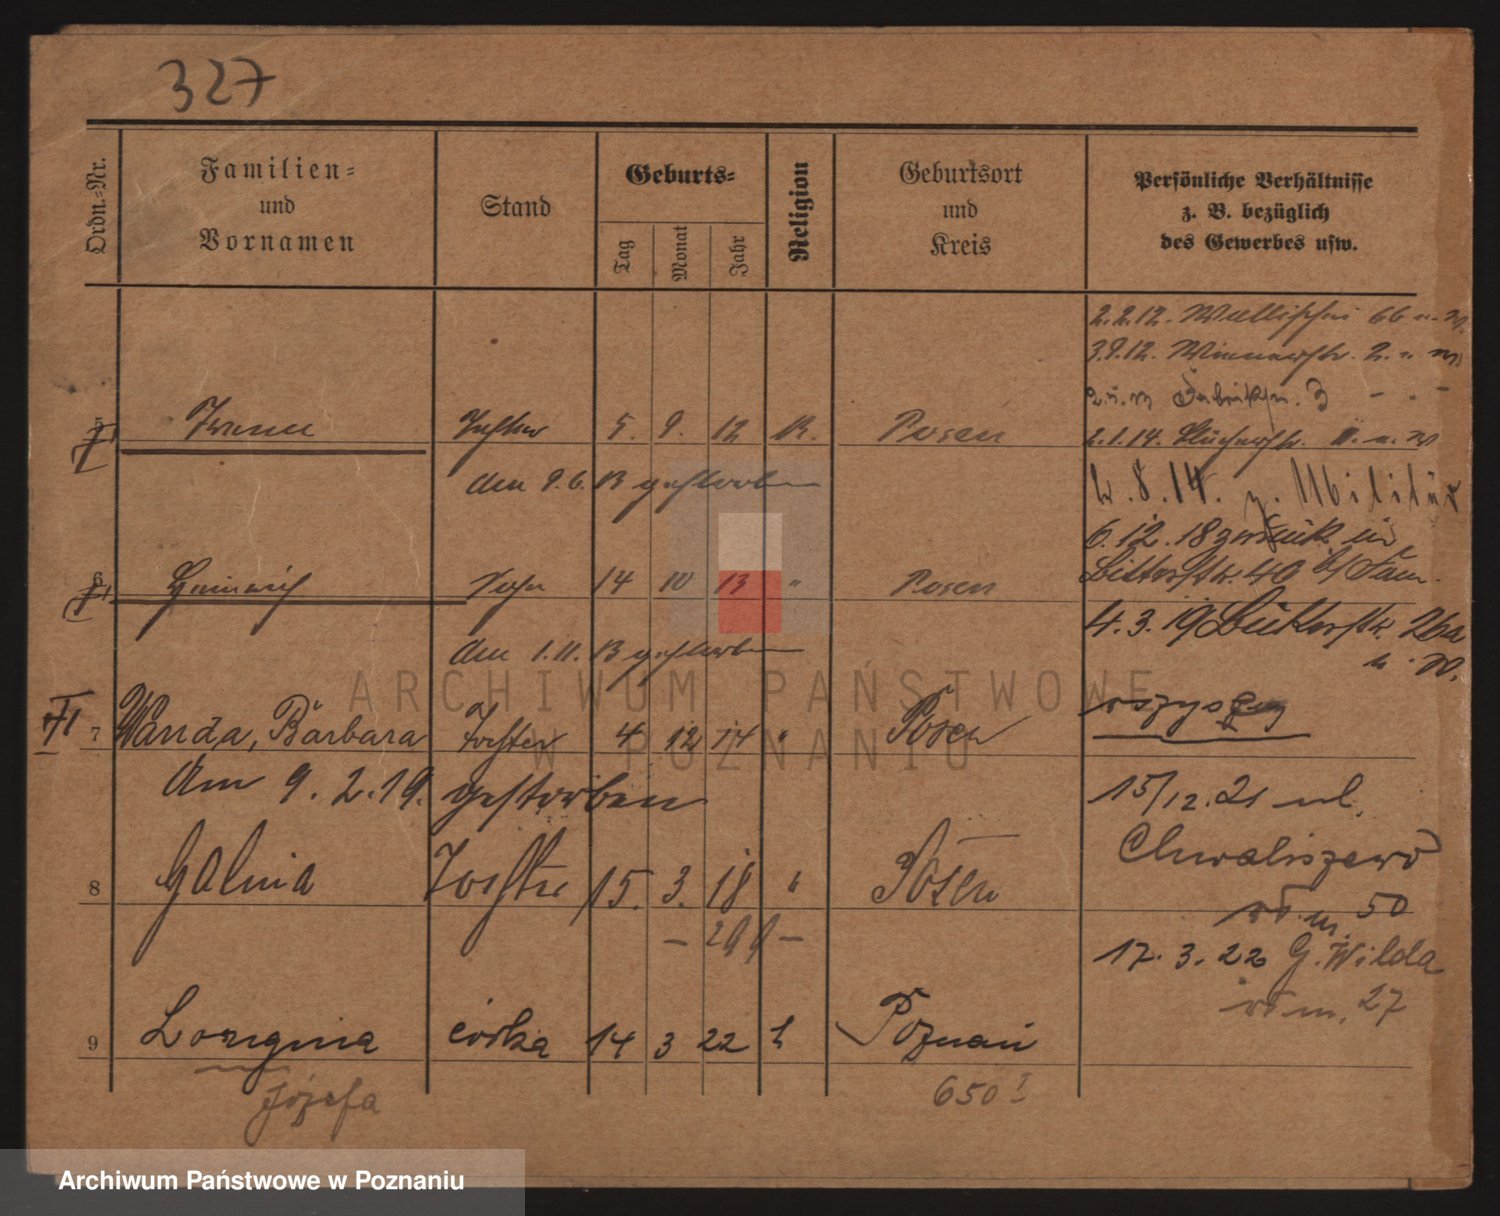 327
Ordn.=Nr.
Familien=
und
Vornamen
Stand
Geburts=
Tag
Monat
Jahr
Religion
Geburtsort
und
Kreis
Persönliche Verhältnisse
z. B. bezüglich
des Gewerbes usw.
2.2.12. Wallischei 66 u. W.
3.9.12. 2. u. W
3
5 Irene Tochter 5. 9. 12 K. Posen
2.1.14. II. u. W
am 9.6.13 gestorben
2.8.14. z. Militär
6.12.18 zurück in
6 Heinrich Sohn 14 10 13 " Posen
40 b/ Fam.
4.3.19 26a
u. W.
am 1.11.13 gestorben
7 Wanda, Barbara Tochter 4 12 14 " Posen
am 9.2.19. gestorben
15/12.21 ul.
Chwaliszewo
8 Halina Tochter 15. 3. 18 " Posen
50
- 299 -
17.3.22 G. Wilda
27
9 Longina córka 14 3 22 k Poznań
Józefa
650 I
ARCHIWUM PAŃSTWOWE
W POZNANIU
Archiwum Państwowe w Poznaniu